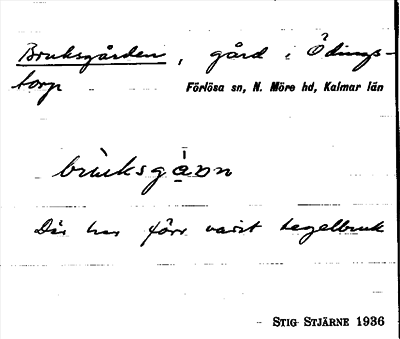 Bruksgården, gård i Ödings-
torp Förlösa sn, N. Möre hd, Kalmar län
brùksgạ̄ɒn
Där har förr varit tegelbruk
STIG STJÄRNE 1936